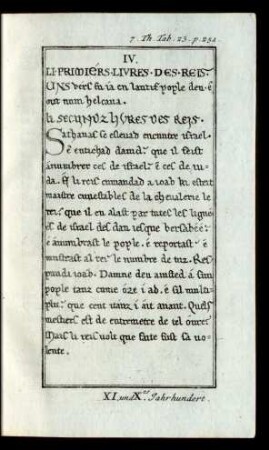 7. Th. Tab. 23. p. 252.
IV.
LI·PRIMIERS·LIVRES·DES·REIS·
UNS vers fu ja en lantif pople deu· e
out nom helcana.
li SECUNDZ LIVRES DES REIS.
Sathanas se eslevad encuntre israel·
E entichad david· que il feist
anumbrer ces de israel· e ces de iu-
da. E li reis cumandad a ioab ki esteit
maistre cunestables de la chevalerie le
rei· que il en alast par tutes les lignees
de israel des dan iesque bersabee·
e anumbrast le pople. e reportast· e
mustrast al rei le numbre de tuz. Res-
pundi ioab. Damne deu amsted a sun
pople tanz cume ore i ad. e sil multi-
plit· que cent itanz i ait anant. Quels
mestiers est de entremetre de tel ovre·
Mais li reis volt que faite fust sa vo-
lente.
XI. und X Jahrhundert.